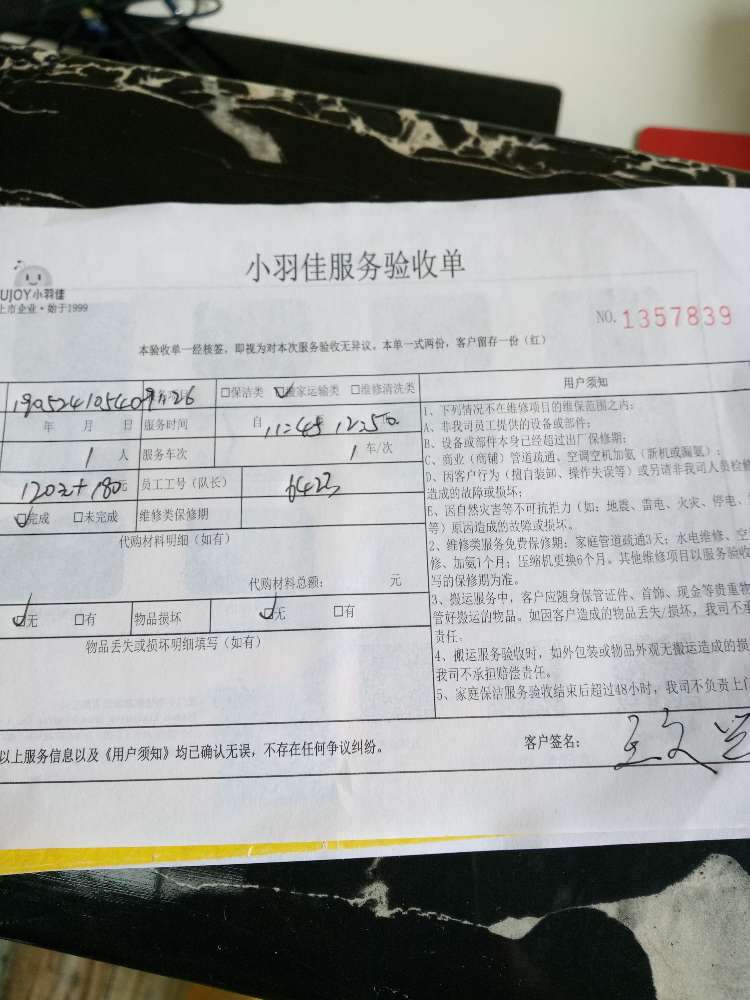 小羽佳服务验收单
UJOY小羽佳
上市企业·始于1999
NO.1357839
本验收单一经核签，即视为对本次服务验收无异议。本单一式两份，客户留存一份（红）
□保洁类 ☑搬家运输类 □维修清洗类
年 月 日 服务时间 自 11:45 12:50
1 人 服务车次 1 车/次
120元+180元 员工工号（队长） 6423
☑完成 □未完成 维修类保修期
代购材料明细（如有）
代购材料总额： 元
☑无 □有 物品损坏 ☑无 □有
物品丢失或损坏明细填写（如有）
用户须知
1、下列情况不在维修项目的维保范围之内：
A、非我司员工提供的设备或部件；
B、设备或部件本身已经超过出厂保修期；
C、商业（商铺）管道疏通、空调空机加氨（新机或漏氨）；
D、因客户行为（擅自装卸、操作失误等）或另请非我司人员检修
造成的故障或损坏；
E、因自然灾害等不可抗拒力（如：地震、雷电、火灾、停电、
等）原因造成的故障或损坏。
2、维修类服务免费保修期：家庭管道疏通3天；水电维修、空
修、加氨1个月；压缩机更换6个月。其他维修项目以服务验收
写的保修期为准。
3、搬运服务中，客户应随身保管证件、首饰、现金等贵重物
管好搬运的物品。如因客户造成的物品丢失/损坏，我司不承
责任。
4、搬运服务验收时，如外包装或物品外观无搬运造成的损
我司不承担赔偿责任。
5、家庭保洁服务验收结束后超过48小时，我司不负责上门
以上服务信息以及《用户须知》均已确认无误，不存在任何争议纠纷。
客户签名：